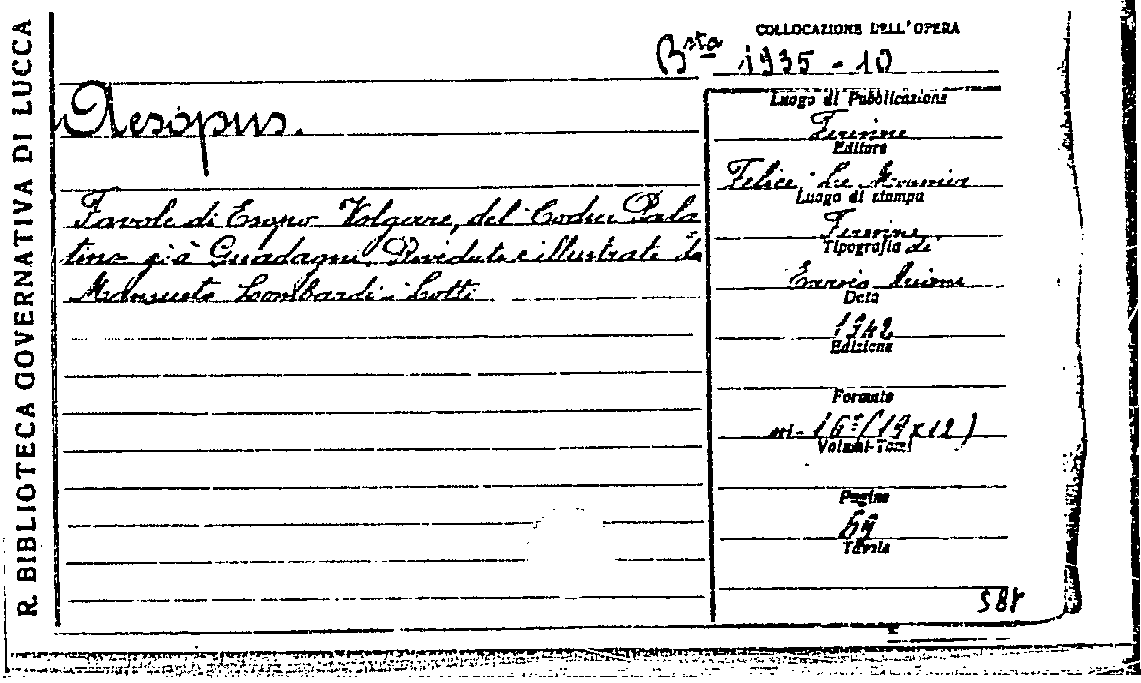 R. BIBLIOTECA GOVERNATIVA DI LUCCA
COLLOCAZIONE DELL'OPERA
Bsta 1935 - 10
Aesopus.
Favole di Esopo Volgare, del Codice Pala
tino già Guadagni. Rivedute e illustrate da
Mansueto Lombardi-Lotti
Luogo di Pubblicazione
Firenze
Editore
Felice Le Monnier
Luogo di stampa
Firenze
Tipografia di
Ariani
Data
1942
Edizione
Formato
in-16° (19x12)
Volumi-Tomi
Pagine
59
Tavole
S8Y